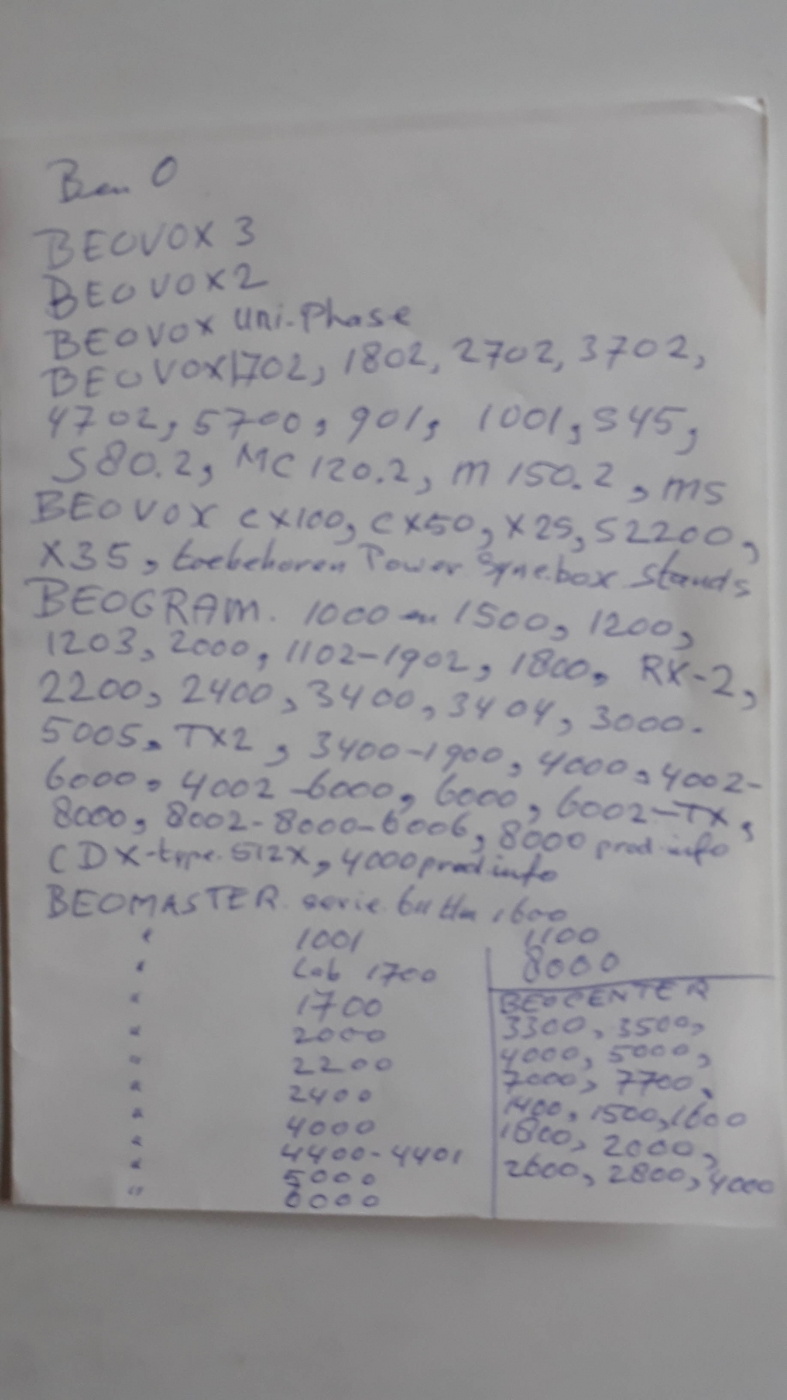 B en O
BEOVOX 3
BEOVOX 2
BEOVOX uni-Phase
BEOVOX 1702, 1802, 2702, 3702,
4702, 5700, 901, 1001, S45,
S80.2, MC 120.2, M 150.2, MS
BEOVOX CX100, CX50, X25, S2200,
X35, toebehoren Power Sync.box Stands
BEOGRAM. 1000 en 1500, 1200,
1203, 2000, 1102-1902, 1800, RX-2,
2200, 2400, 3400, 3404, 3000.
5005. TX2, 3400-1900, 4000, 4002-
6000, 4002-6000, 6000, 6002-TX,
8000, 8002-8000-6006, 8000 prod-info
CDX-type.512X, 4000 prod info
BEOMASTER. serie t/m 1600
" 1001 1100
" Lab 1700 8000
" 1700 BEOCENTER
" 2000 3300, 3500,
" 2200 4000, 5000,
" 2400 7000, 7700,
" 4000 1400, 1500, 1600
" 4400-4401 1800, 2000,
" 5000 2600, 2800, 4000
" 6000